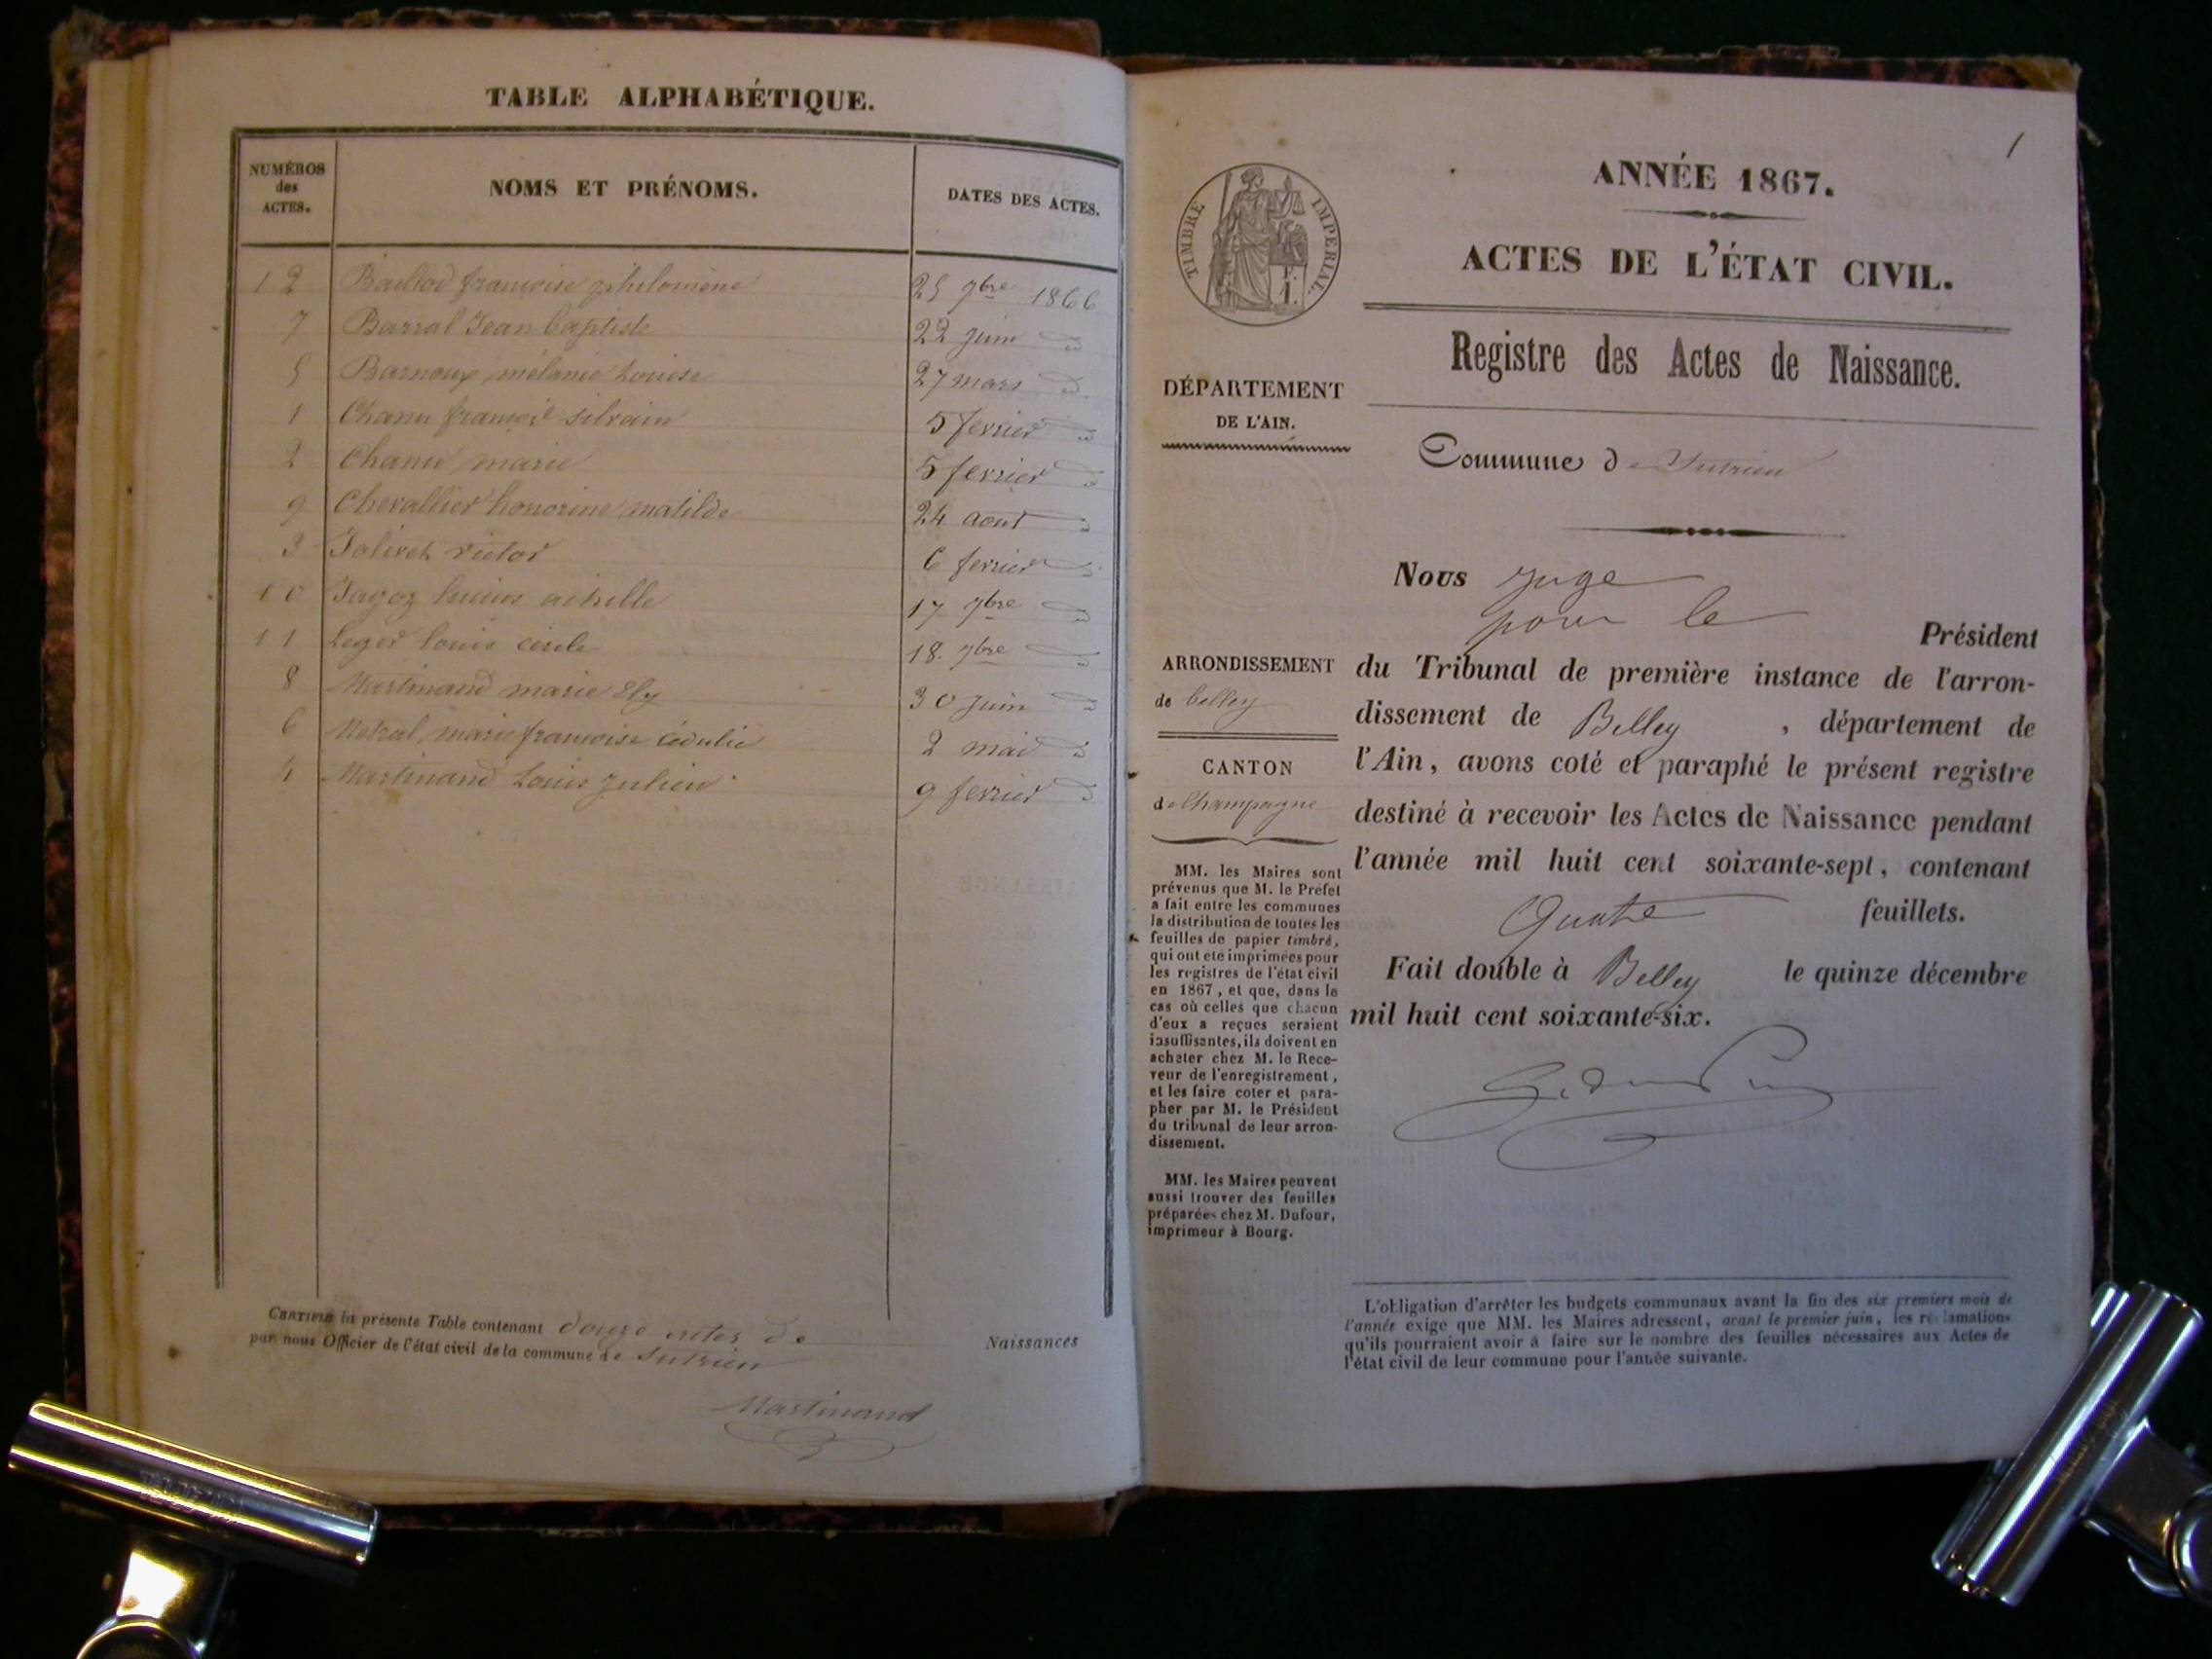 TABLE ALPHABÉTIQUE.
NUMÉROS des ACTES.
NOMS ET PRÉNOMS.
DATES DES ACTES.
12 Baillod françoise philomène 25 7bre 1866
7 Barral Jean baptiste 22 juin d
5 Barnoux mélanie Louise 27 mars d
1 Chanu silvain 5 fevrier d
2 Chanu marie 5 fevrier d
9 Chevallier honorine matilde 24 aout d
3 Jolivet victor 6 fevrier d
10 Jagoz achille 17 7bre d
11 Leger louis 18 7bre d
8 Martinand marie Ely 30 juin d
6 marie françoise 2 mai d
4 Martinand Louis Julien 9 fevrier d
CERTIFIÉ la présente Table contenant douze actes de Naissances
par nous Officier de l'état civil de la commune de Sutrieu
Martinand
1
TIMBRE IMPERIAL.
ANNÉE 1867.
ACTES DE L'ÉTAT CIVIL.
Registre des Actes de Naissance.
DÉPARTEMENT
DE L'AIN.
Commune de Sutrieu
ARRONDISSEMENT
de belley
CANTON
de Champagne
MM. les Maires sont
prévenus que M. le Préfet
a fait entre les communes
la distribution de toutes les
feuilles de papier timbré,
qui ont été imprimées pour
les registres de l'état civil
en 1867, et que, dans le
cas où celles que chacun
d'eux a reçues seraient
insuffisantes, ils doivent en
acheter chez M. le Rece-
veur de l'enregistrement,
et les faire coter et para-
pher par M. le Président
du tribunal de leur arron-
dissement.
MM. les Maires peuvent
aussi trouver des feuilles
préparées chez M. Dufour,
imprimeur à Bourg.
Nous juge
pour le
Président
du Tribunal de première instance de l'arron-
dissement de Belley, département de
l'Ain, avons coté et paraphé le présent registre
destiné à recevoir les Actes de Naissance pendant
l'année mil huit cent soixante-sept, contenant
Quatre feuillets.
Fait double à Belley le quinze décembre
mil huit cent soixante-six.
L'obligation d'arrêter les budgets communaux avant la fin des six premiers mois de
l'année exige que MM. les Maires adressent, avant le premier juin, les réclamations
qu'ils pourraient avoir à faire sur le nombre des feuilles nécessaires aux Actes de
l'état civil de leur commune pour l'année suivante.